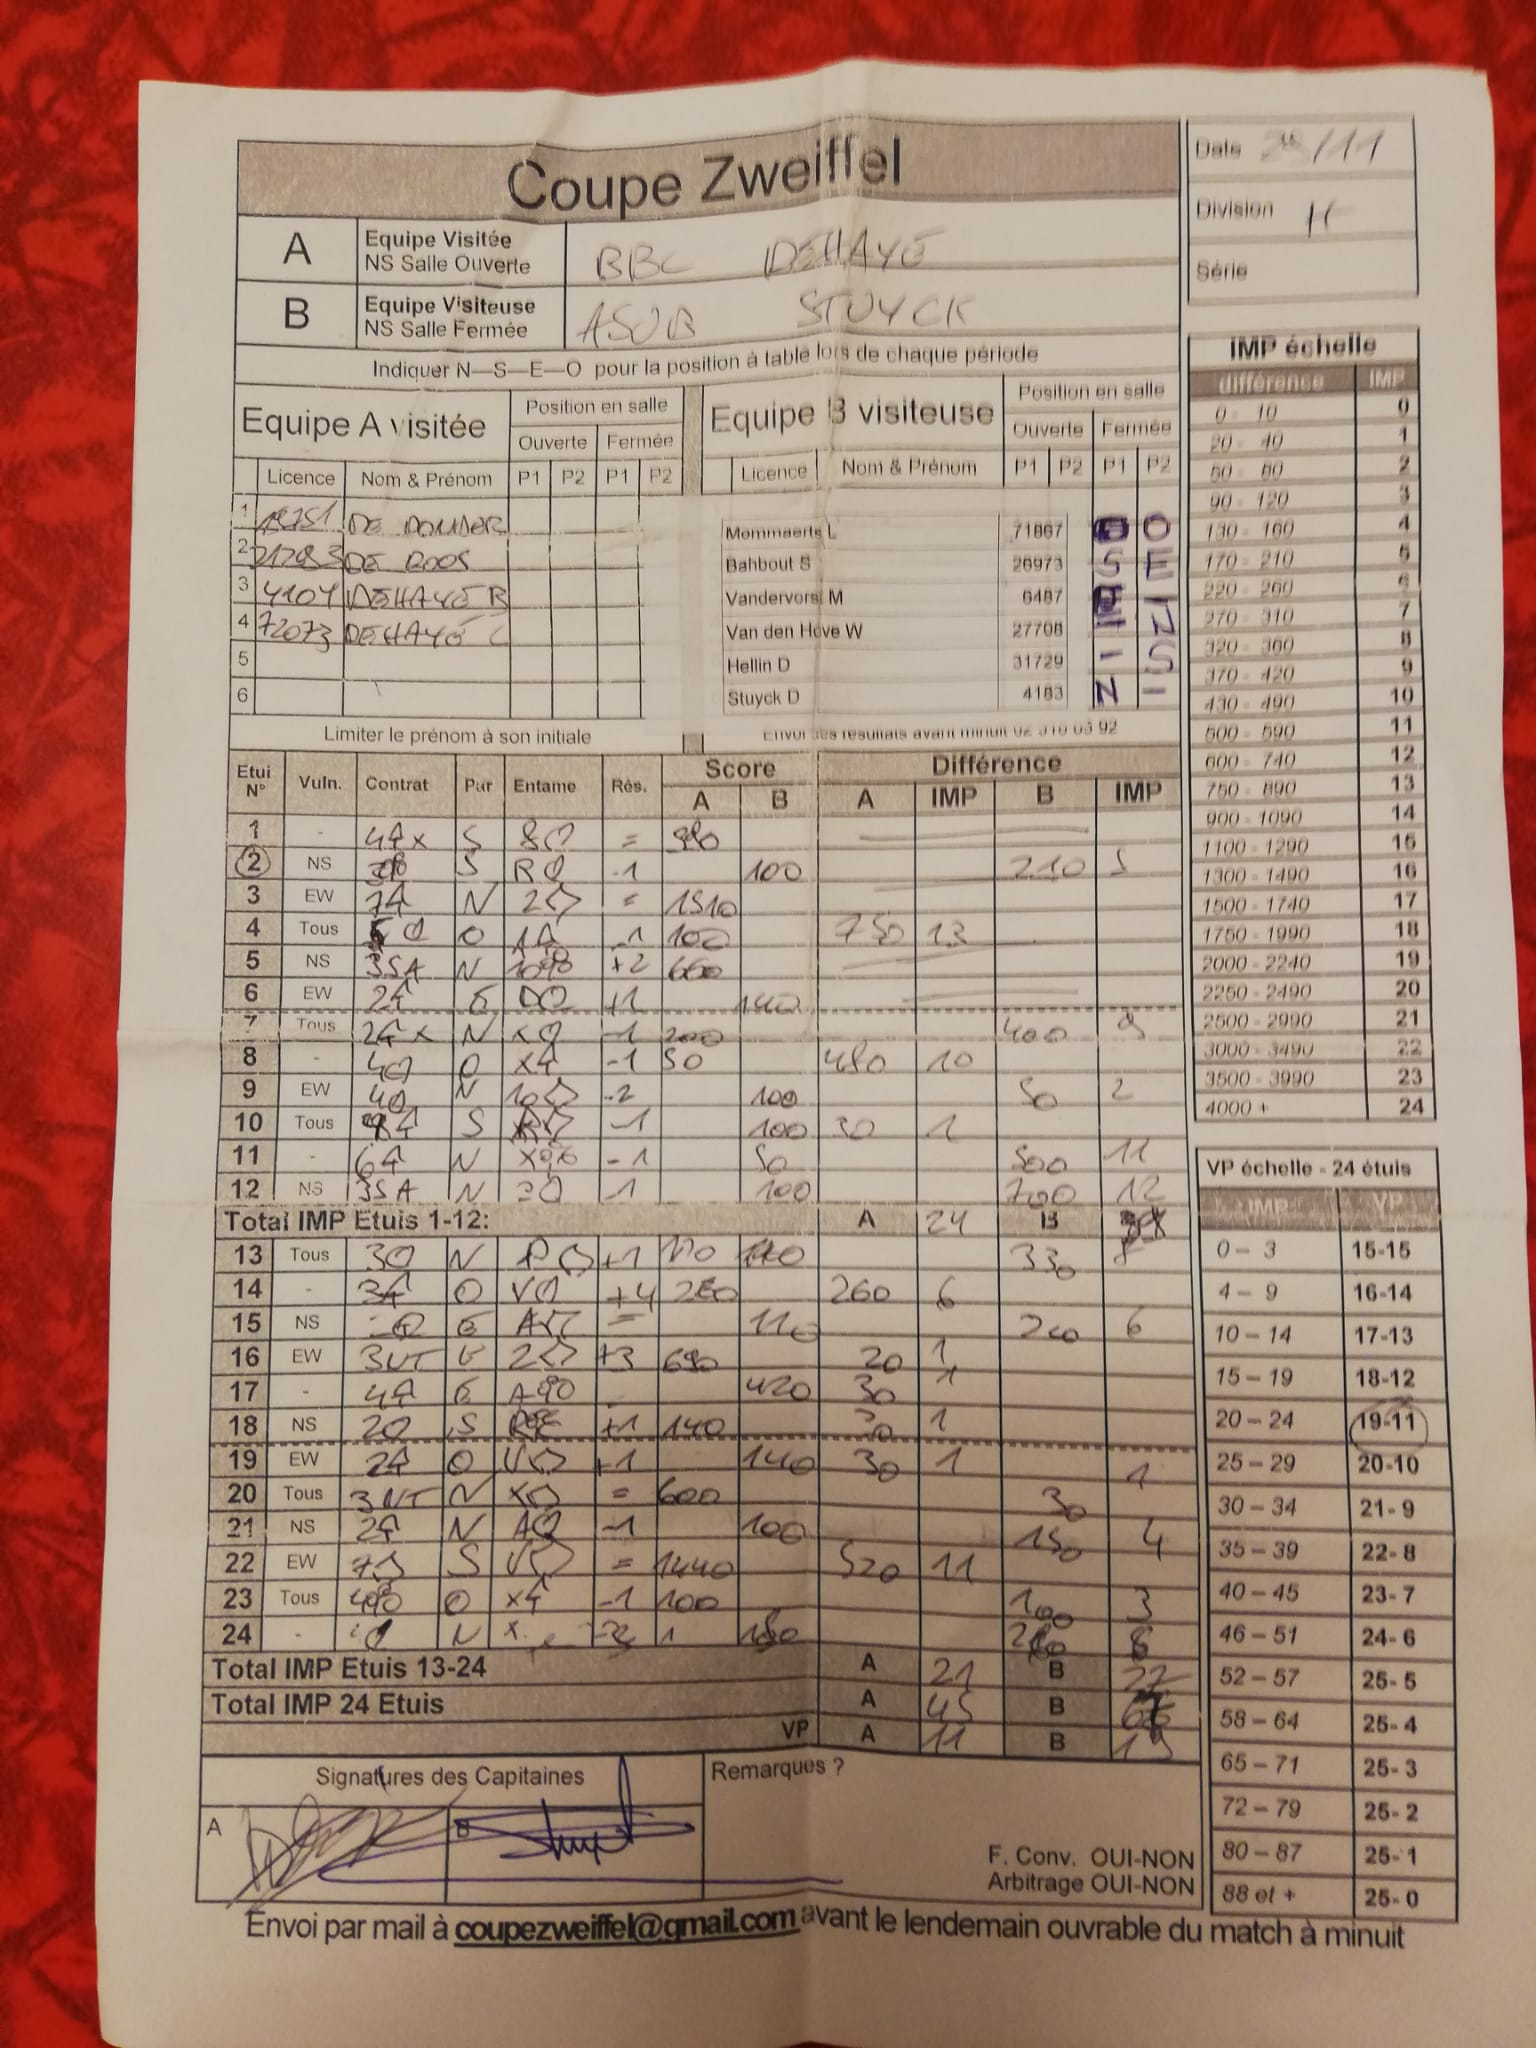 Coupe Zweiffel
Date /11
Division H
Série
A Equipe Visitée NS Salle Ouverte BBC DEHAYE
B Equipe Visiteuse NS Salle Fermée ASUB STUYCK
Indiquer N—S—E—O pour la position à table lors de chaque période
Equipe A visitée Position en salle Ouverte Fermée
Licence Nom & Prénom P1 P2 P1 P2
1 DE DONDER
2 21283 DE ROOS
3 4104 DEHAYE B
4 72073 DEHAYE C
5
6
Equipe B visiteuse Position en salle Ouverte Fermée
Licence Nom & Prénom P1 P2 P1 P2
Mommaerts L 71867 O
Bahbout S 26973 S E
Vandervorst M 6487 N
Van den Hove W 27708
Hellin D 31729 - S
Stuyck D 4183 N -
Limiter le prénom à son initiale
Envoi des résultats avant minuit 02 310 03 92
Etui N° Vuln. Contrat Par Entame Rés. Score A B Différence A IMP B IMP
1 - 4♠x S 8♡ =
2 NS S R♡ -1 100 210 5
3 EW 7♠ N 2♢ = 1510
4 Tous O -1 100 750 13
5 NS 3SA N 10♣ +2 660
6 EW 2♠ E D♡ +1 140
7 Tous 2♠x N x♡ -1 200 400 9
8 - 4♡ O x♠ -1 50 480 10
9 EW 4♡ N 10♢ -2 100 50 2
10 Tous S -1 100 30 1
11 - 6♠ N x♣ -1 50 500 11
12 NS 3SA N -1 100 700 12
Total IMP Etuis 1-12: A 24 B
13 Tous N +1 330 8
14 - 3♠ O V♡ +4 260 6
15 NS E = 110 240 6
16 EW 3NT E 2♢ +3 690 20 1
17 - 4♠ E A♣ 420 30 1
18 NS S +1 140 1
19 EW 2♠ O V♢ +1 140 30 1
20 Tous 3NT N x♢ = 600 30 1
21 NS 2♠ N A♡ -1 100 150 4
22 EW S = 1440 520 11
23 Tous 4♣ O x♠ -1 100 100 3
24 - N
Total IMP Etuis 13-24 A 21 B
Total IMP 24 Etuis A 45 B
VP A 11 B 19
Signatures des Capitaines
A B
Remarques ?
F. Conv. OUI-NON
Arbitrage OUI-NON
IMP échelle
différence IMP
0 - 10 0
20 - 40 1
50 - 80 2
90 - 120 3
130 - 160 4
170 - 210 5
220 - 260 6
270 - 310 7
320 - 360 8
370 - 420 9
430 - 490 10
500 - 590 11
600 - 740 12
750 - 890 13
900 - 1090 14
1100 - 1290 15
1300 - 1490 16
1500 - 1740 17
1750 - 1990 18
2000 - 2240 19
2250 - 2490 20
2500 - 2990 21
3000 - 3490 22
3500 - 3990 23
4000 + 24
VP échelle - 24 étuis
IMP VP
0 – 3 15-15
4 – 9 16-14
10 – 14 17-13
15 – 19 18-12
20 – 24 19-11
25 – 29 20-10
30 – 34 21- 9
35 – 39 22- 8
40 – 45 23- 7
46 – 51 24- 6
52 – 57 25- 5
58 – 64 25- 4
65 – 71 25- 3
72 – 79 25- 2
80 – 87 25- 1
88 et + 25- 0
Envoi par mail à coupezweiffel@gmail.com avant le lendemain ouvrable du match à minuit